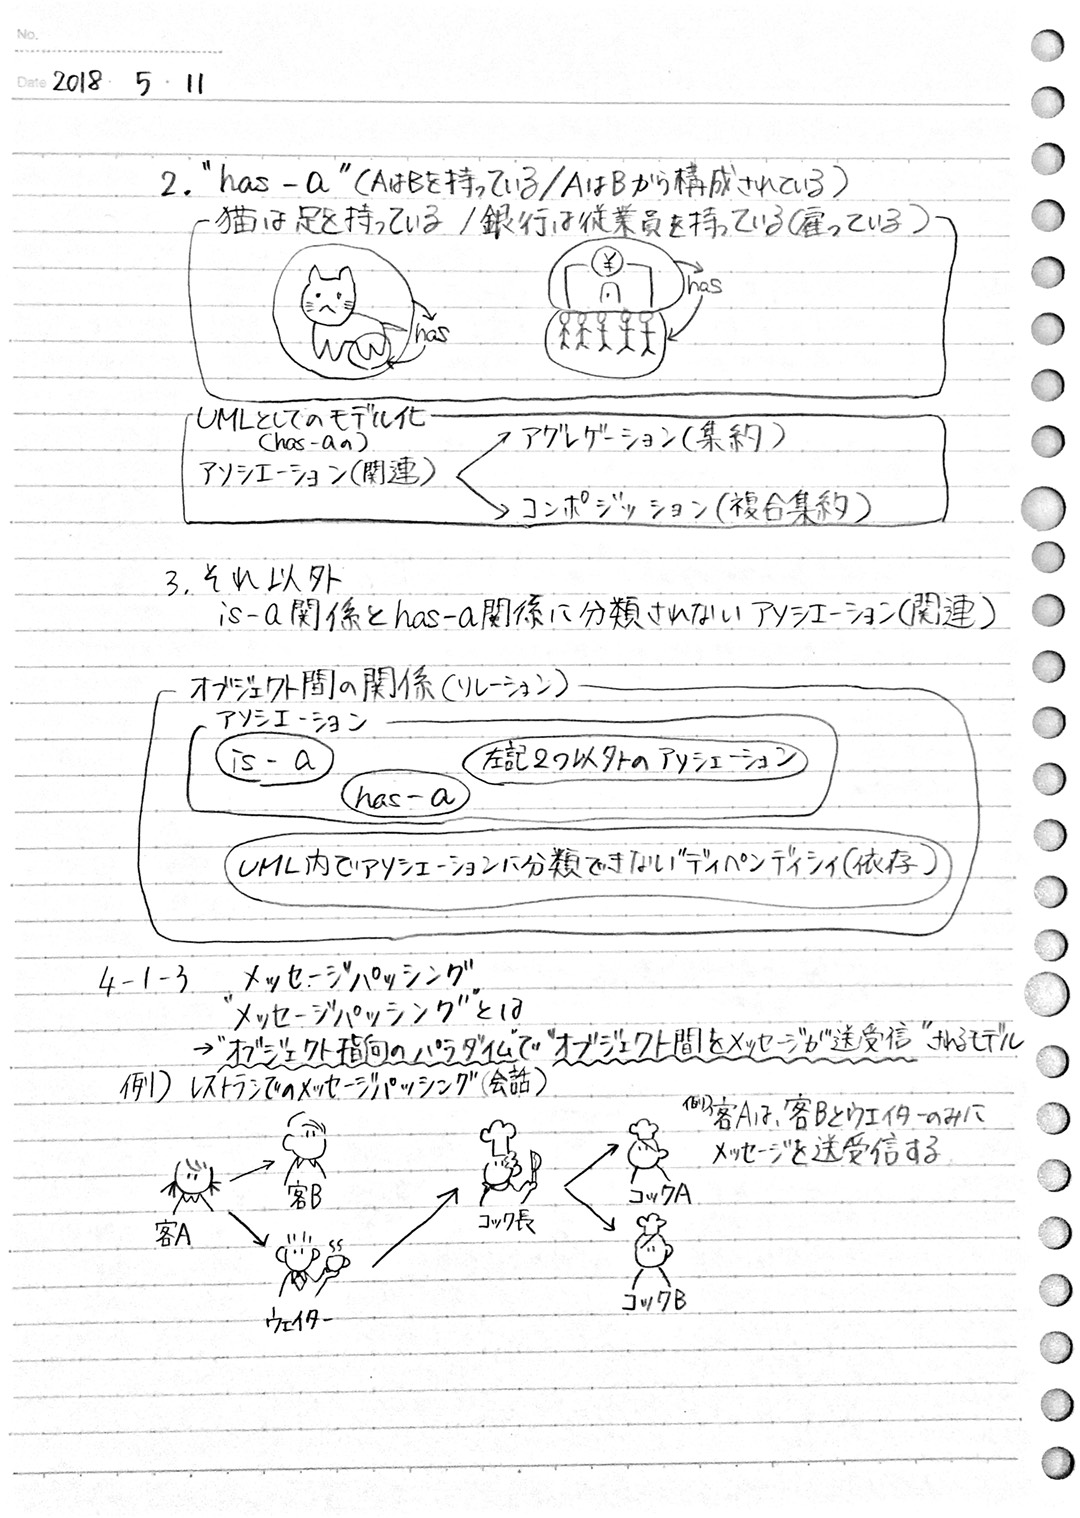 No.
Date 2018・5・11
2. "has-a"(AはBを持っている/AはBから構成されている)
猫は足を持っている/銀行は従業員を持っている(雇っている)
¥
has
has
UMLとしてのモデル化
(has-aの)
アソシエーション(関連)
アグレゲーション(集約)
コンポジッション(複合集約)
3. それ以外
is-a関係とhas-a関係に分類されないアソシエーション(関連)
オブジェクト間の関係(リレーション)
アソシエーション
is-a
左記2つ以外のアソシエーション
has-a
UML内でアソシエーションに分類できない"ディペンディシィ(依存)
4-1-3 メッセージパッシング
"メッセージパッシング"とは
→"オブジェクト指向のパラダイム"で"オブジェクト間をメッセージが送受信"されるモデル
例1) レストランでのメッセージパッシング(会話)
例) 客Aは、客Bとウエイターのみに
メッセージを送受信する
客A
客B
ウェイター
コック長
コックA
コックB